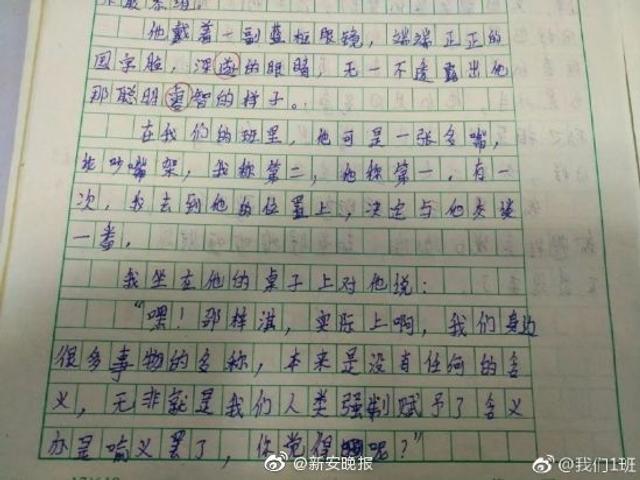 他戴着一副蓝框眼镜，端端正正的
国字脸，深邃的眼睛，无一不透露出他
那聪明睿智的样子。
在我们的班里，他可是一张多嘴，
论吵嘴架，我称第二，他称第一，有一
次，我去到他的位置上，决定与他交谈
一番。
我坐在他的桌子上对他说：
“嘿！邵梓淇，实际上啊，我们身边
很多事物的名称，本来是没有任何的含
义，无非就是我们人类强制赋予了含义
亦是喻义罢了，你觉得呢？”
@新安晚报
@我们1班